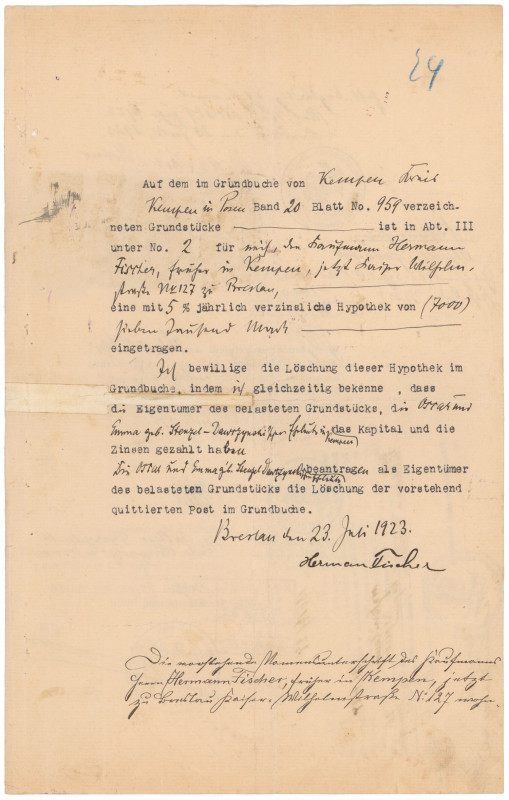 24
Auf dem im Grundbuche von Kempen Kreis
Kempen in Posen Band 20 Blatt No. 959 verzeich-
neten Grundstücke ist in Abt. III
unter No. 2 für mich, den Kaufmann Hermann
Fischer, früher in Kempen, jetzt Kaiser Wilhelm-
straße Nr 127 zu Breslau,
eine mit 5 % jährlich verzinsliche Hypothek von (7000)
sieben Tausend Mark
eingetragen.
Ich bewillige die Löschung dieser Hypothek im
Grundbuche, indem ich gleichzeitig bekenne, dass
die Eigentümer des belasteten Grundstücks, die Oscar und
Emma geb. Stenzel- Eheleute in Kempen das Kapital und die
Zinsen gezahlt haben
Die Oscar und Emma geb. Stenzel beantragen als Eigentümer
des belasteten Grundstücks die Löschung der vorstehend
quittierten Post im Grundbuche.
Breslau den 23. Juli 1923.
Herman Fischer
Die vorstehende Namensunterschrift des Kaufmanns
Herrn Hermann Fischer, früher in Kempen, jetzt
zu Breslau Kaiser-Wilhelmstraße Nr 127 wohn.